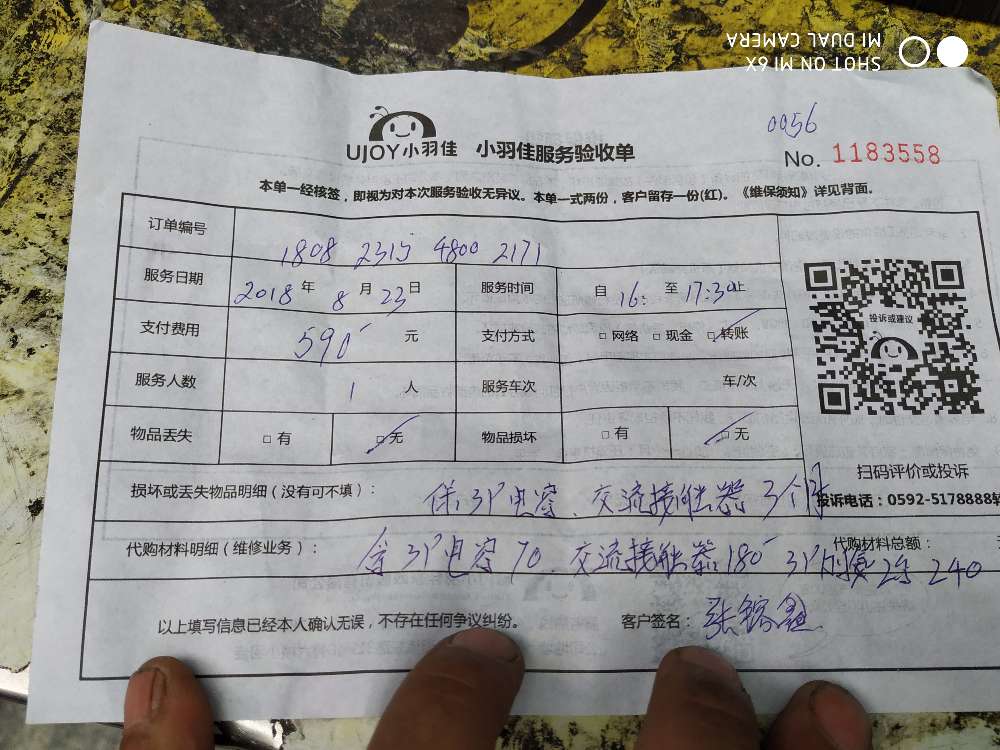 SHOT ON MI 6X
MI DUAL CAMERA
0056
UJOY小羽佳 小羽佳服务验收单
No. 1183558
本单一经核签，即视为对本次服务验收无异议。本单一式两份，客户留存一份(红)。《维保须知》详见背面。
订单编号 1808 2315 4800 2171
服务日期 2018年8月23日 服务时间 自16:至17:30止
支付费用 590元 支付方式 □网络 □现金 □转账
投诉或建议
服务人数 1人 服务车次 车/次
物品丢失 □有 □无 物品损坏 □有 □无
扫码评价或投诉
损坏或丢失物品明细（没有可不填）： 保:3P电容、交流接触器3个月
投诉电话：0592-5178888转
代购材料明细（维修业务）： 含3P电容70、交流接触器180 3P 240
代购材料总额：
以上填写信息已经本人确认无误，不存在任何争议纠纷。 客户签名：张